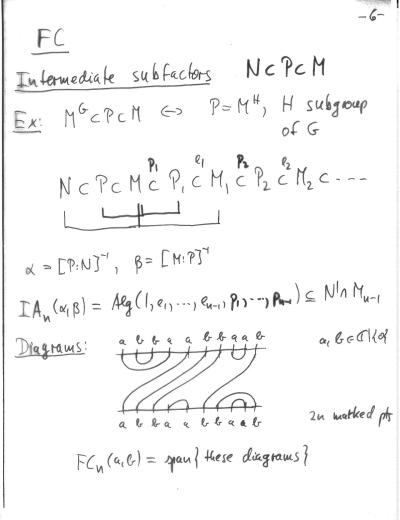 -6-
FC
Intermediate subfactors N⊂P⊂M
Ex: M^G⊂P⊂M ⇔ P=M^H, H subgroup
of G
p₁ e₁ p₂ e₂
N ⊂ P ⊂ M ⊂ P₁ ⊂ M₁ ⊂ P₂ ⊂ M₂ ⊂ ---
α = [P:N]⁻¹, β = [M:P]⁻¹
IA_n(α,β) = Alg(1, e₁, ..., e_{n-1}, p₁, ..., p_{n-1}) ⊆ N'∩M_{n-1}
Diagrams: a b b a a b b a a b a,b ∈ ℂ\{0}
a b b a a b b a a b 2n marked pts
FC_n(a,b) = span{these diagrams}